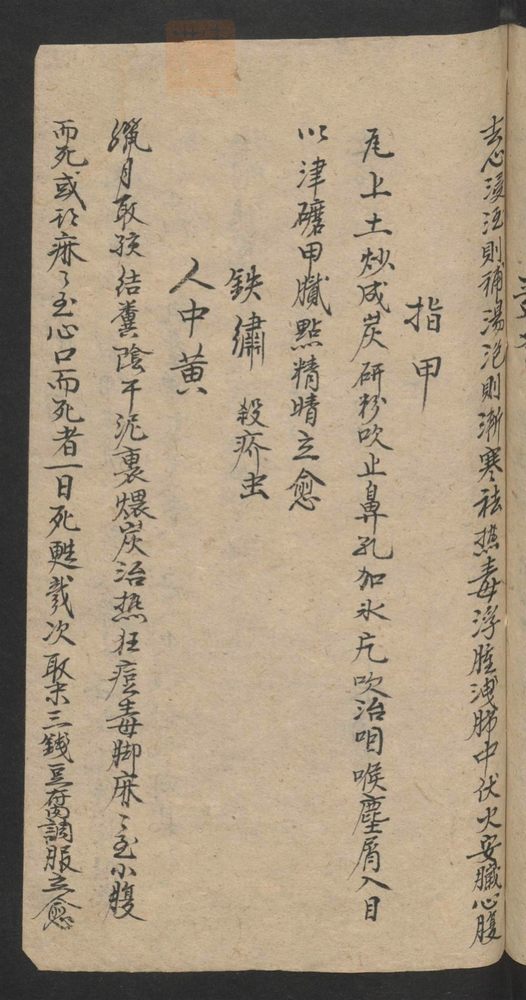 去心浸泡則補湯泡則瀉寒祛熱毒浮腫洩肺中伏火安臟心腹
指甲
瓦上土炒成炭研粉吹止鼻孔加氷片吹治咽喉塵屑入目
以津磨甲膩點精晴立愈
鉄繡 殺疥虫
人中黃
臘月取孩結糞陰干泥裹煨炭治熱狂痘毒脚麻〻至小腹
而死或 麻〻至心口而死者一日死甦 次取末三錢豆腐調服立愈